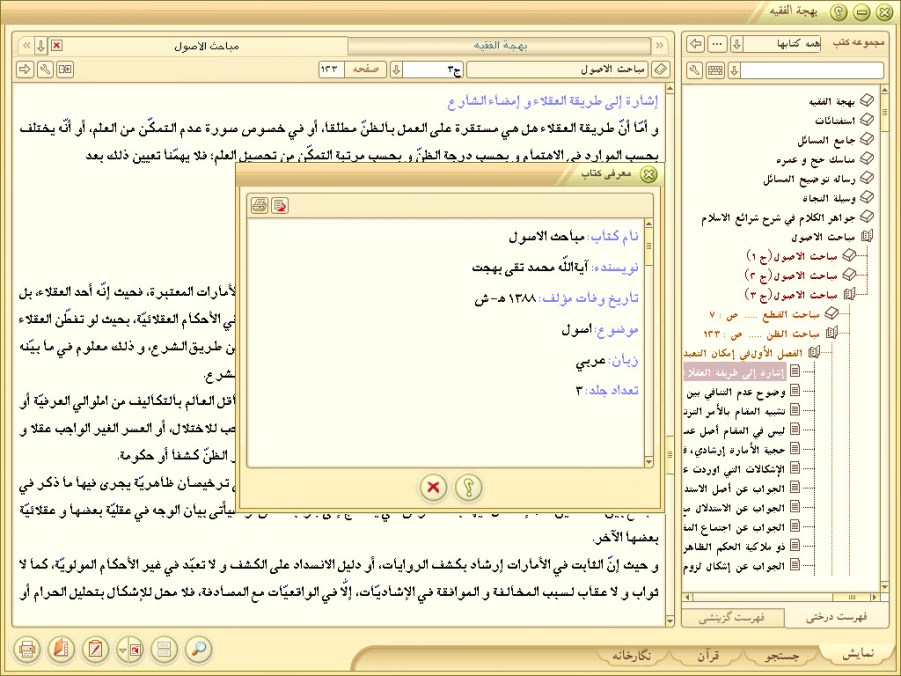 بهجة الفقيه
مجموعه کتب
همه کتابها
بهجة الفقیه
استفتائات
جامع المسائل
مناسک حج و عمره
رساله توضیح المسائل
وسیلة النجاة
جواهر الکلام في شرح شرائع الاسلام
مباحث الاصول
مباحث الاصول(ج ۱)
مباحث الاصول(ج ۲)
مباحث الاصول(ج ۳)
مباحث القطع ..... ص : ۷
مباحث الظن ..... ص : ۱۳۳
الفصل الأول‌في إمكان التعبد
إشارة إلى طريقة العقلا
وضوح عدم التنافي بين
تشبيه المقام بالأمر الترتـ
ليس في المقام أصل عمـ
حجية الأمارة إرشادي،
الإشكالات التي اوردت عـ
الجواب عن أصل الاستد
الجواب عن الاستدلال مـ
الجواب عن اجتماع المفـ
ذو ملاكية الحكم الظاهر
الجواب عن إشكال لزوم
فهرست درختی
فهرست گزینشی
بهجة الفقیه
مباحث الاصول
مباحث الاصول
ج۳
صفحه
۱۳۳
إشارة إلى طريقة العقلاء و إمضاء الشارع
و أمّا أنّ طريقة العقلاء هل هي مستقرة على العمل بالظنّ مطلقاً، أو في خصوص صورة عدم التمكّن من العلم، أو أنّه يختلف
بحسب الموارد في الاهتمام و بحسب درجة الظنّ و بحسب مرتبة التمكّن من تحصيل العلم؛ فلا يهمّنا تعيين ذلك بعد
لأمارات المعتبرة، فحيث إنّه أحد العقلاء، بل
في الأحكام العقلائيّة، بحيث لو تفطّن العقلاء
ن طريق الشرع، و ذلك معلوم في ما بيّنه
شرع.
أقل العالم بالتكاليف من اموالي العرفيّة أو
جب للاختلال، أو العسر الغير الواجب عقلا و
ر الظنّ كشفاً أو حكومة.
ى ترخيصان ظاهريّة يجرى فيها ما ذكر في
سيأتى بيان الوجه في عقليّة بعضها و عقلائيّة
بعضها الآخر.
و حيث إنّ الثابت في الأمارات إرشاد بكشف الروايات، أو دليل الانسداد على الكشف و لا تعبّد في غير الأحكام المولويّة، كما لا
ثواب و لا عقاب لسبب المخالفة و الموافقة في الإشاديّات، إلّا في الواقعيّات مع المصادفة، فلا محل للإشكال بتحليل الحرام أو
معرفی کتاب
نام کتاب: مباحث الاصول
نویسنده: آیةاللّه محمد تقی بهجت
تاریخ وفات مؤلف: ۱۳۸۸ ه‍- ش
موضوع: اصول
زبان: عربي
تعداد جلد: ۳
نمایش
جستجو
قرآن
نگارخانه